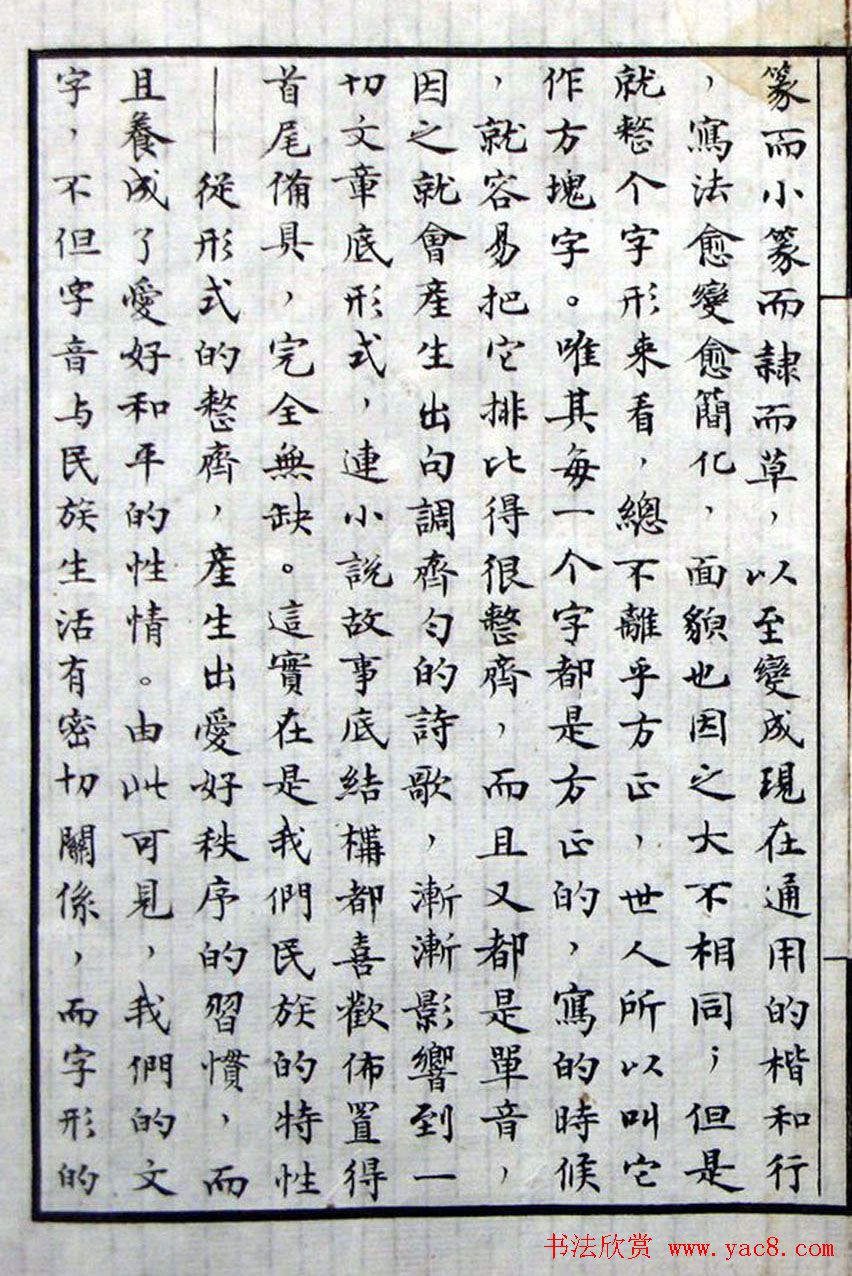 篆而小篆而隷而草，以至變成現在通用的楷和行
，寫法愈變愈簡化，面貌也因之大不相同；但是
就整个字形来看，總不離乎方正，世人所以叫它
作方塊字。唯其每一个字都是方正的，寫的時候
，就容易把它排比得很整齊，而且又都是單音，
因之就會產生出句調齊匀的詩歌，漸漸影響到一
切文章底形式，連小說故事底結構都喜歡佈置得
首尾備具，完全無缺。這實在是我們民族的特性
——從形式的整齊，產生出愛好秩序的習慣，而
且養成了愛好和平的性情。由此可見，我們的文
字，不但字音与民族生活有密切關係，而字形的
书法欣赏 www.yac8.com